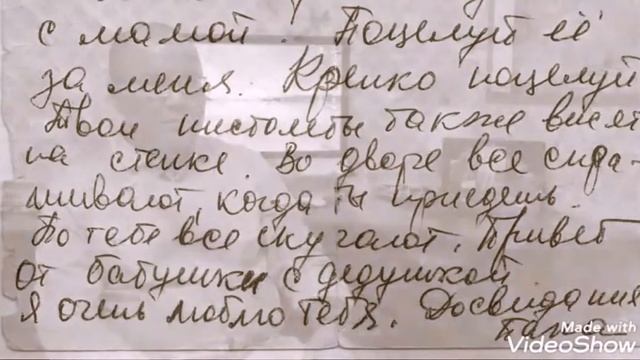 с мамой. Поцелуй её
за меня. Крепко поцелуй
Твои пистолеты также висят
на стенке. Во дворе все спра-
шивают, когда ты приедешь.
По тебе все скучают. Привет
от бабушки с дедушкой
я очень люблю тебя. Досвидания
Папа
Made with
VideoShow